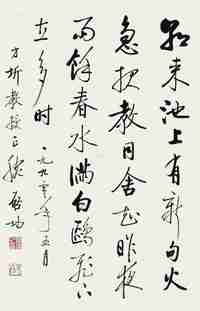 朝来池上有新句火
急报教同舍知昨夜
雨餘春水满白鸥飛下
立多时 一九九〇年五月
方圻教授正腕 启功